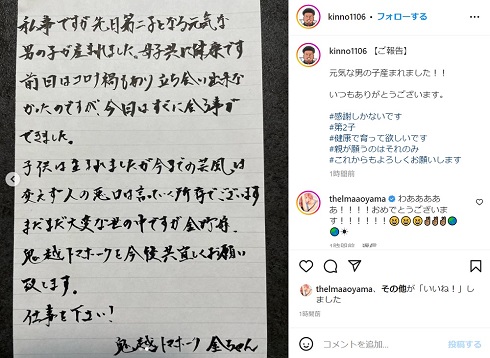 私事ですが先日第二子となる元気な
男の子が産まれました。母子共に健康です
前回はコロナ禍もあり立ち会い出来な
かったのですが、今回はすぐに会う事が
できました。
子供は生まれましたが今までの芸風は
変えず人の悪口は言っていく所存でございます
まだまだ大変な世の中ですが金野、
鬼越トマホークを今後共宜しくお願い
致します。
仕事を下さい!
鬼越トマホーク 金ちゃん
kinno1106 • フォローする
kinno1106 【ご報告】
元気な男の子産まれました!!
いつもありがとうございます。
#感謝しかないです
#第2子
#健康で育って欲しいです
#親が願うのはそれのみ
#これからもよろしくお願いします
1時間前
thelmaaoyama ✔ わああああ
あ!!!!おめでとうございま
す!!!!!!!😆😆😆✌✌✌🌏
🌏☀
1時間前 返信
thelmaaoyama、その他が「いいね!」し
ました
1時間前
コメントを追加...